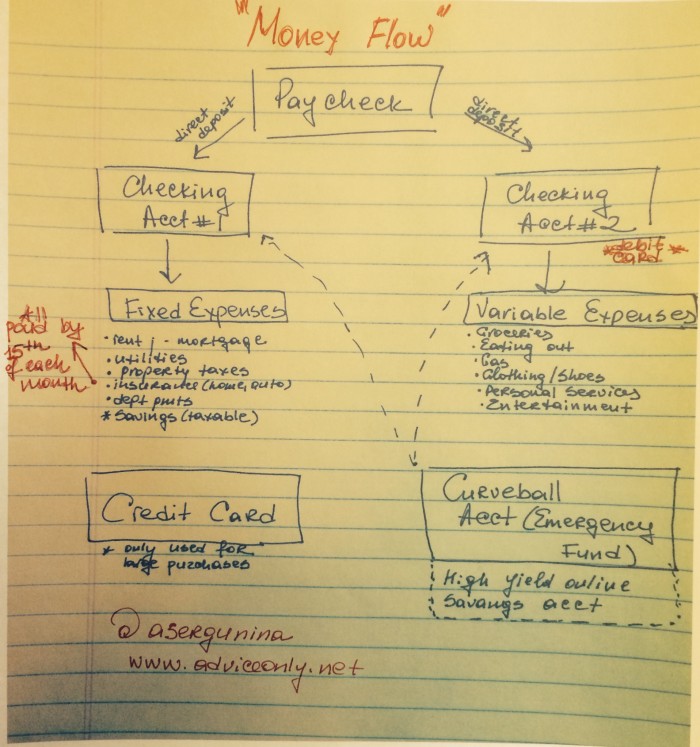 "Money Flow"
Paycheck
direct
deposit
direct
deposit
Checking
Acct #1
Checking
Acct #2
*debit *
card
Fixed Expenses
Variable Expenses
All
paid by
15th
of each
month
· rent / · mortgage
· utilities
· property taxes
· insurance (home, auto)
· dept pmts
* Savings (taxable)
· Groceries
· Eating out
· Gas
· Clothing/Shoes
· Personal Services
· Entertainment
Credit Card
* only used for
large purchases
Curveball
Acct (Emergency
Fund)
High yield online
Savangs acct
@asergunina
www.adviceonly.net